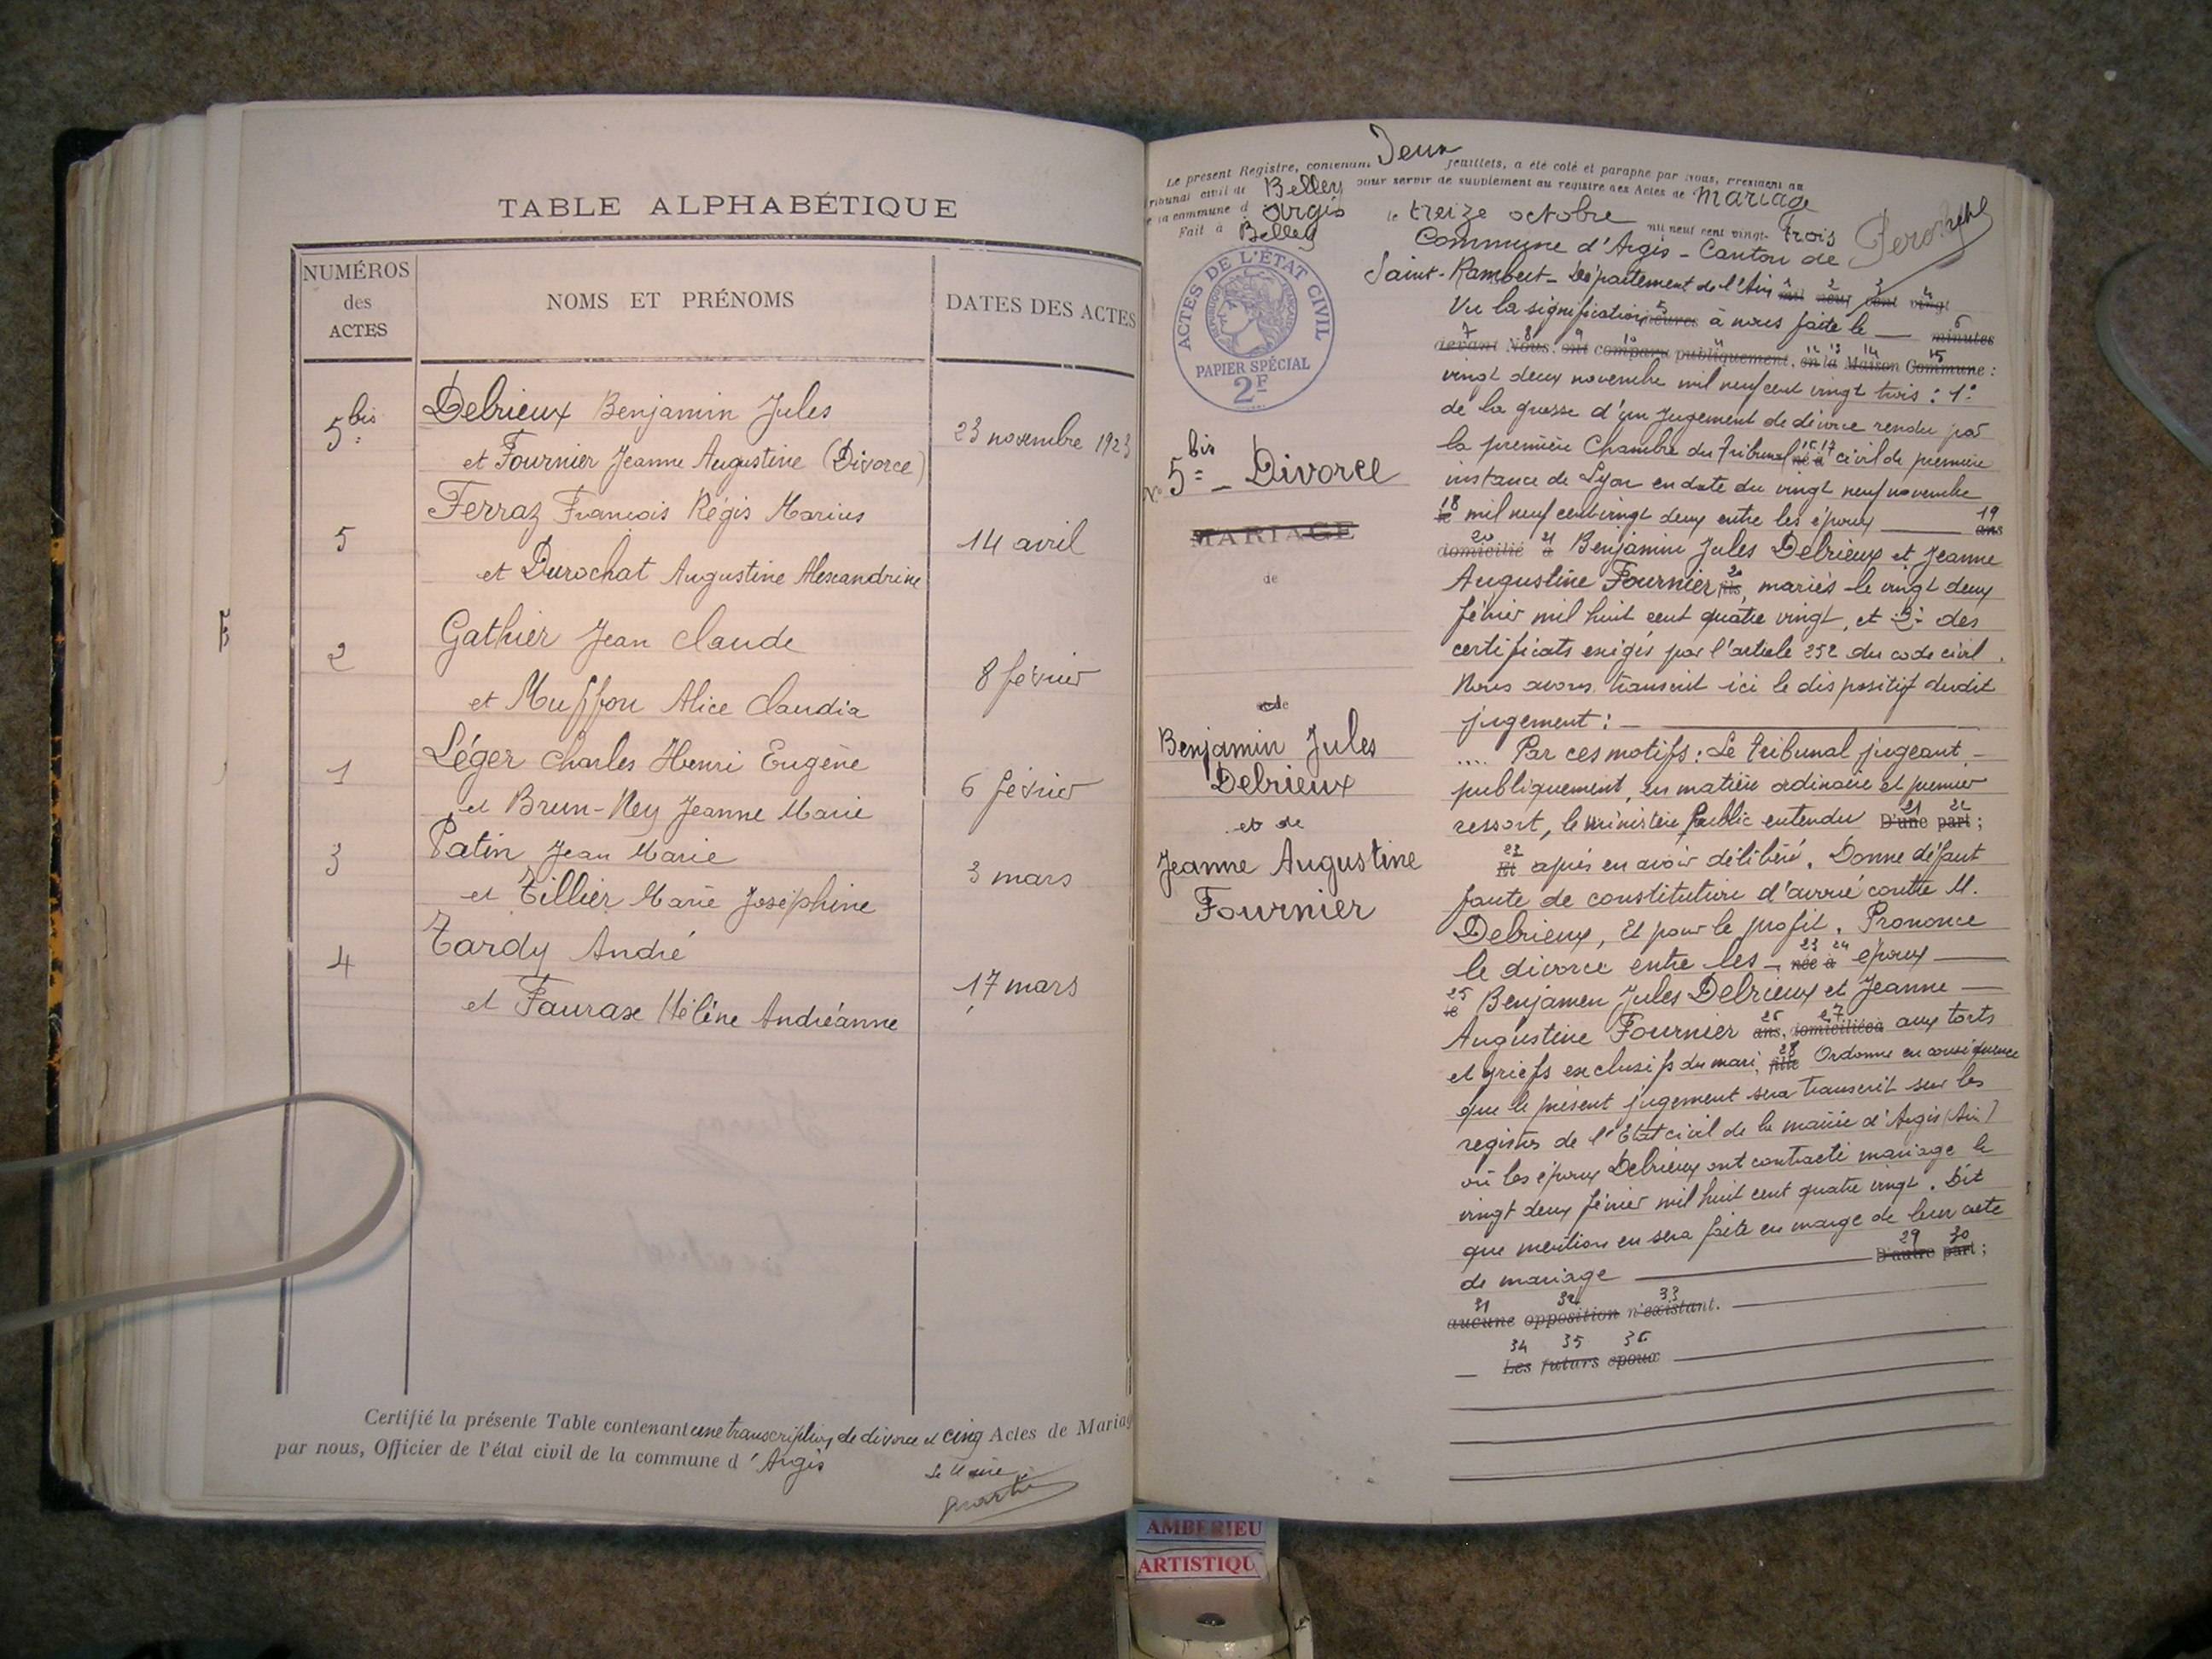 TABLE ALPHABÉTIQUE
NUMÉROS des ACTES
NOMS ET PRÉNOMS
DATES DES ACTES
5 bis
Debrieux Benjamin Jules
et Fournier Jeanne Augustine (Divorce)
23 novembre 1923
Ferraz François Régis Marius
5
14 avril
et Durochat Augustine Alexandrine
Gathier Jean Claude
2
8 février
et Muffon Alice Claudia
Léger Charles Henri Eugène
1
6 février
et Brun-Ney Jeanne Marie
Patin Jean Marie
3
3 mars
et Tillier Marie Joséphine
Tardy André
4
17 mars
et Faurax Hélène Andréanne
Certifié la présente Table contenant une transcription de divorce et cinq Actes de Mariag
par nous, Officier de l'état civil de la commune d'Argis
Le Maire
Le présent Registre, contenant Deux feuillets, a été coté et paraphé par Nous, Président du
Tribunal civil de Belley pour servir de supplément au registre des Actes de Mariage
de la commune d Argis
Fait à Belley le treize octobre mil neuf cent vingt-trois
ACTES DE L'ÉTAT CIVIL
RÉPUBLIQUE FRANÇAISE
PAPIER SPÉCIAL
2F
N° 5 bis – Divorce
MARIAGE
de
et de
Benjamin Jules
Debrieux
et de
Jeanne Augustine
Fournier
Commune d'Argis - Canton de
Saint-Rambert - Département de l'Ain 1 mil 2 neuf 3 cent 4 vingt
Vu la signification 5 heures à nous faite le — 6 minutes
7 devant 8 Nous, 9 ont 10 comparu 11 publiquement, 12 en 13 la 14 Maison 15 Commune :
vingt deux novembre mil neuf cent vingt trois : 1°
de la grosse d'un jugement de divorce rendu par
la première Chambre du Tribunal 16 né 17 à civil de première
instance de Lyon en date du vingt neuf novembre
18 le mil neuf cent vingt deux entre les époux — 19 ans
20 domicilié 21 à Benjamin Jules Debrieux et Jeanne
Augustine Fournier 20 fils, mariés le vingt deux
février mil huit cent quatre vingt, et 2° des
certificats exigés par l'article 252 du code civil.
Nous avons transcrit ici le dispositif dudit
jugement : —
.... Par ces motifs : Le tribunal jugeant -
publiquement, en matière ordinaire et premier
ressort, le ministère Public entendu 21 D'une 22 part ;
22 Et après en avoir délibéré. Donne défaut
faute de constitution d'avoué contre M.
Debrieux, Et pour le profit. Prononce
le divorce entre les - 23 née 24 à époux —
25 le Benjamin Jules Debrieux et Jeanne —
Augustine Fournier 26 ans, 27 domiciliée à aux torts
et griefs exclusifs du mari, 28 fille Ordonne en conséquence
que le présent jugement sera transcrit sur les
registres de l'Etat civil de la mairie d'Argis (Ain)
où les époux Debrieux ont contracté mariage le
vingt deux février mil huit cent quatre vingt. Dit
que mention en sera faite en marge de leur acte
de mariage — 29 D'autre 30 part ;
31 aucune 32 opposition 33 n'existant.
34 Les 35 futurs 36 époux
AMBERIEU
ARTISTIQU